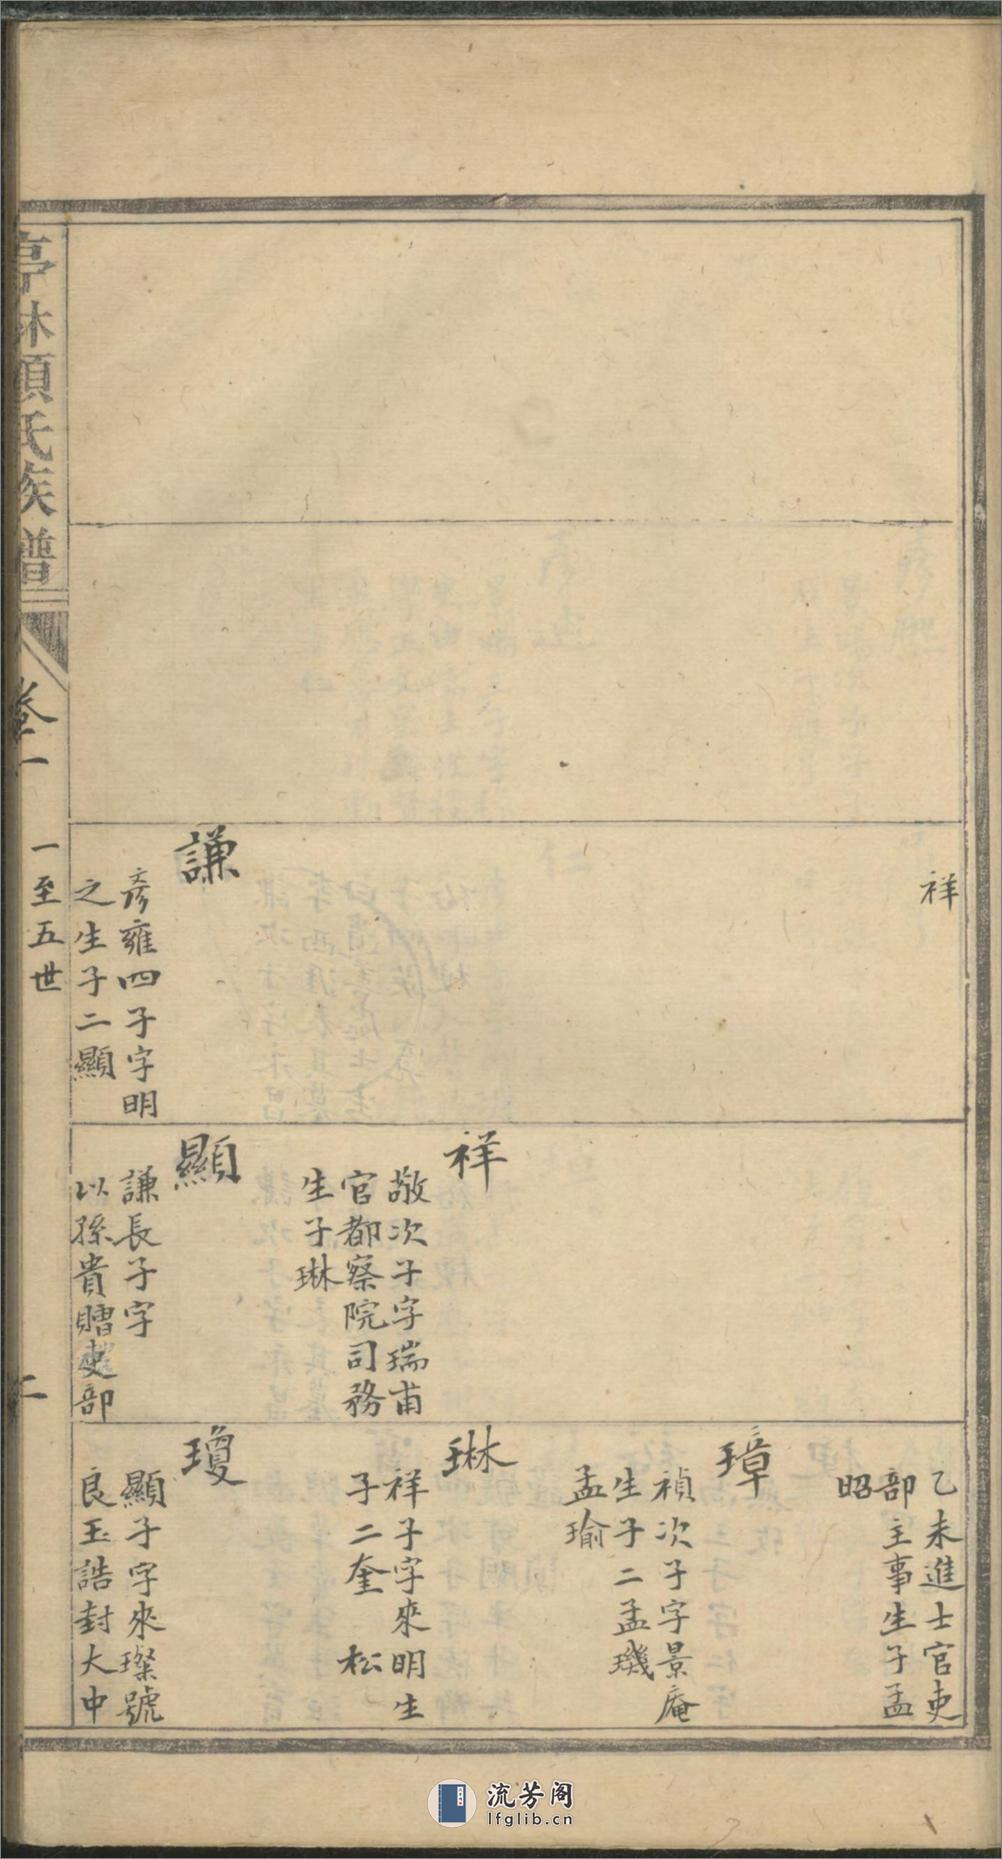 祥
謙
彥雍四子字明
之生子二顯
祥
敬次子字瑞甫
官都察院司務
生子琳
顯
謙長子字
以孫貴贈吏部
乙未進士官吏
部主事生子孟
昭
璋
禎次子字景庵
生子二孟璣
孟瑜
琳
祥子字來明生
子二奎 松
瓊
顯子字來璨號
良玉誥封大中
亭林顧氏族譜
卷一
一至五世
二
流芳阁
lfglib.cn